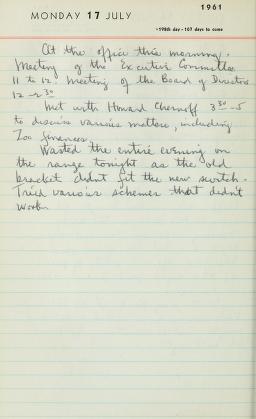 1961
MONDAY 17 JULY
•198th day - 167 days to come
At the office this morning.
Meeting of the Executive Committee
11 to 12. Meeting of the Board of Directors
12 - 2:30
Met with Howard Chernoff 3:30 - 5
to discuss various matters, including
Zoo finances.
Wasted the entire evening on
the range tonight as the old
bracket didn't fit the new switch.
Tried various schemes that didn't
work.